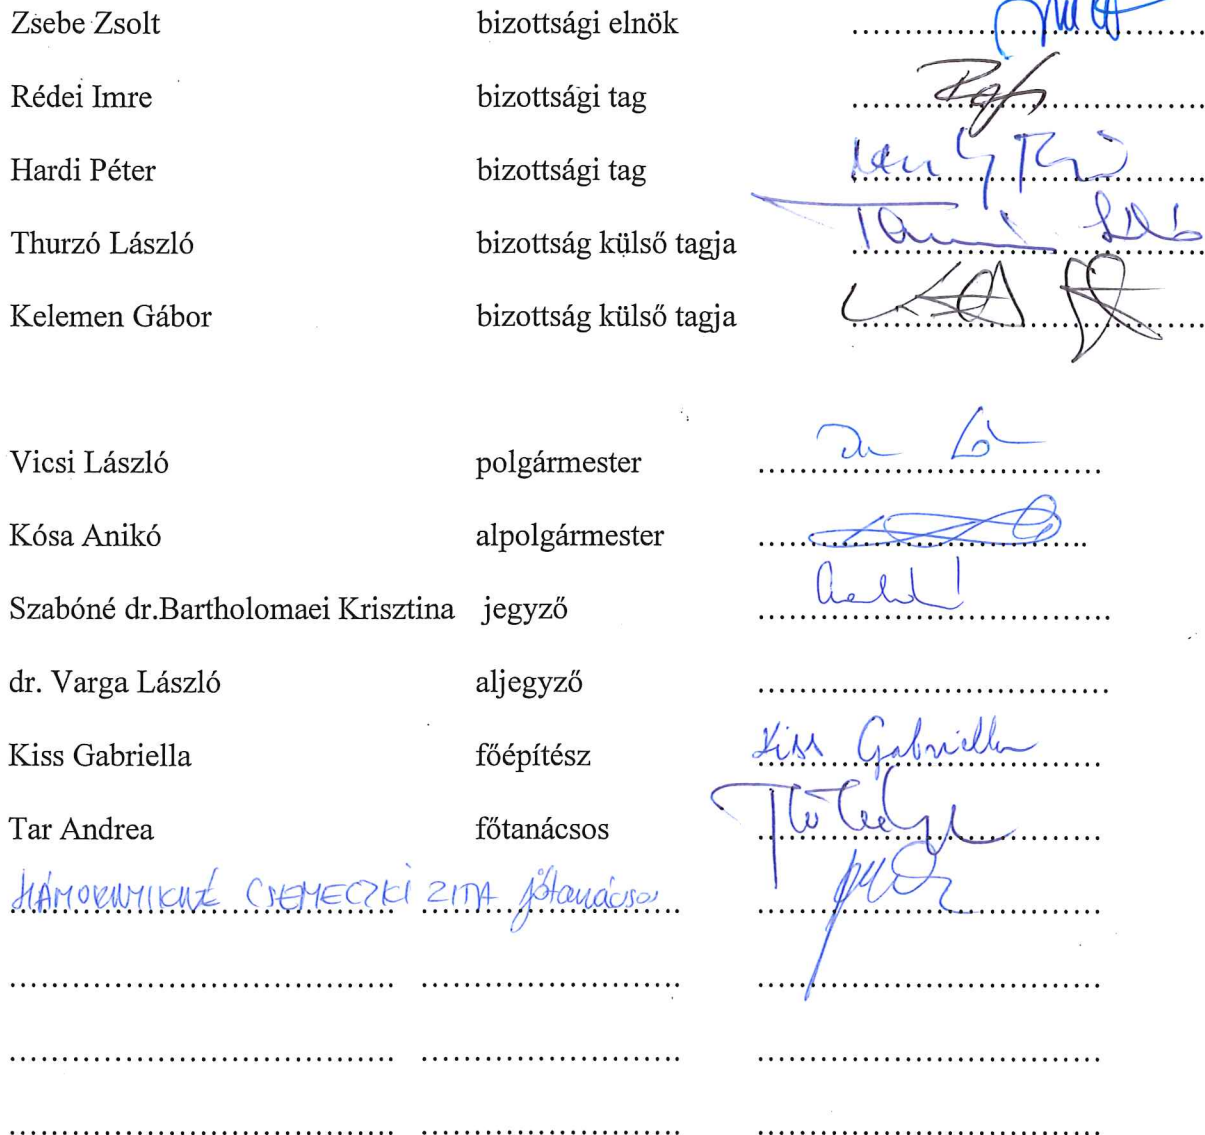 Zsebe Zsolt bizottsági elnök ........................................
Rédei Imre bizottsági tag ........................................
Hardi Péter bizottsági tag ........................................
Thurzó László bizottság külső tagja ........................................
Kelemen Gábor bizottság külső tagja ........................................
Vicsi László polgármester ........................................
Kósa Anikó alpolgármester ........................................
Szabóné dr.Bartholomaei Krisztina jegyző ........................................
dr. Varga László aljegyző ........................................
Kiss Gabriella főépítész Kiss Gabriella
Tar Andrea főtanácsos ........................................
CSEMECZKI ZITA főtanácsos